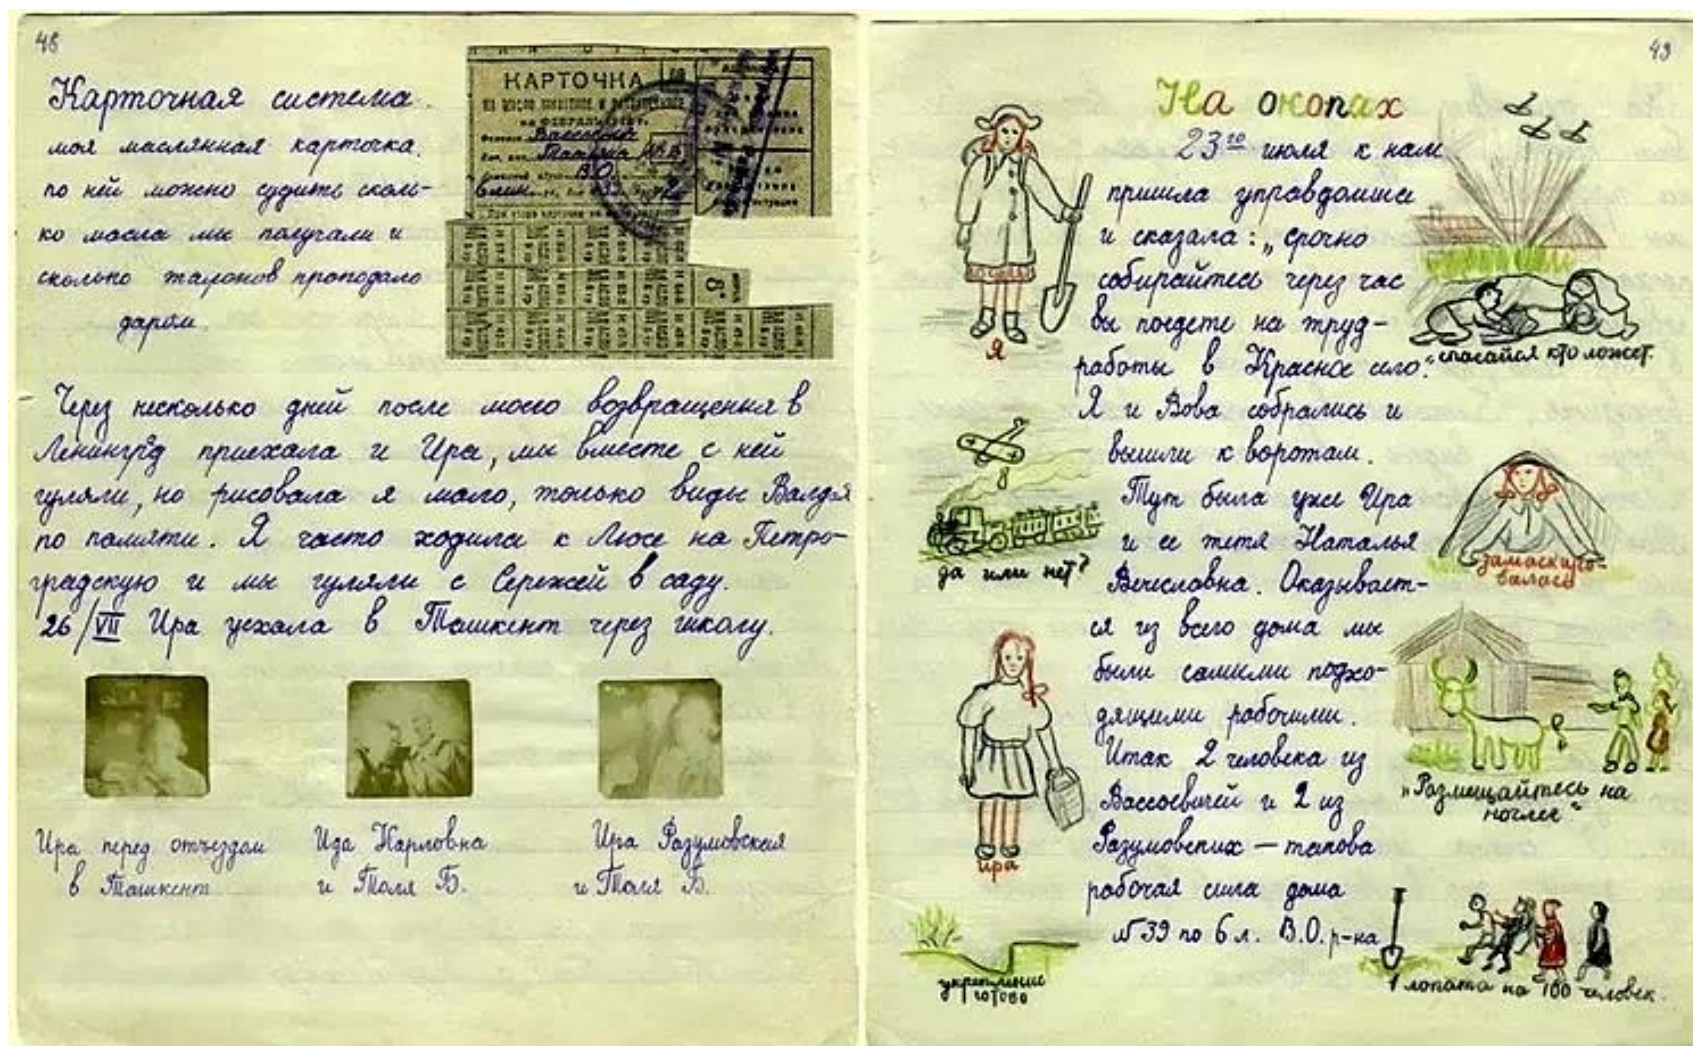 48
Карточная система.
моя маслянная карточка.
по ней можно судить сколь-
ко масла мы получали и
сколько талонов проподало
даром.
КАРТОЧКА
Через несколько дней после моего возвращенья в
Ленингр'д приехала и Ира, мы вместе с ней
гуляли, но рисовала я мало, только виды Валдая
по памяти. Я часто ходила к Люсе на Петро-
градскую и мы гуляли с Сережей в саду.
26/VII Ира уехала в Ташкент через школу.
Ира перед отъездом
в Ташкент
Ида Карловна
и Толя Б.
Ира Разумовская
и Толя Б.
49
На окопах
23го июля к нам
пришла управдомша
и сказала: „срочно
собирайтесь через час
вы поедете на труд-
работы в Красное село."
Я и Вова собрались и
вышли к воротам.
Тут была уже Ира
и ее тетя Наталья
Вечисловна. Оказывает-
ся из всего дома мы
были самыми подхо-
дящими рабочими.
Итак 2 человека из
Вассоевичей и 2 из
Разумовских — такова
рабочая сила дома
№39 по 6 л. В.О. р-на
Я
да или нет?
Ира
укрепление
готово
спасайся кто может.
замаскиро-
валась
„Размещайтесь на
ночлег"
1 лопата на 100 человек.